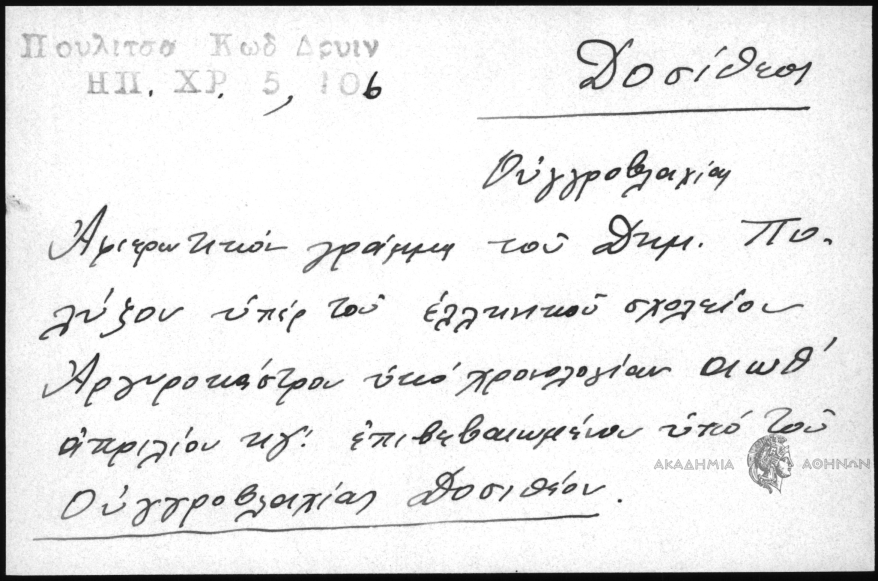 Πουλιτσα Κωδ Δρυιν
ΗΠ. ΧΡ. 5, 106
Δοσίθεος
Οὐγγροβλαχίας
Ἀφιερωτικόν γράμμα τοῦ Δημ. Πο-
λύξου ὑπέρ τοῦ ἑλληνικοῦ σχολείου
Ἀργυροκάστρου ὑπό χρονολογίαν αιωθ'
ἀπριλίου κγ'. ἐπιβεβαιωμένον ὑπό τοῦ
Οὐγγροβλαχίας Δοσιθέου.
ΑΚΑΔΗΜΙΑ ΑΘΗΝΩΝ